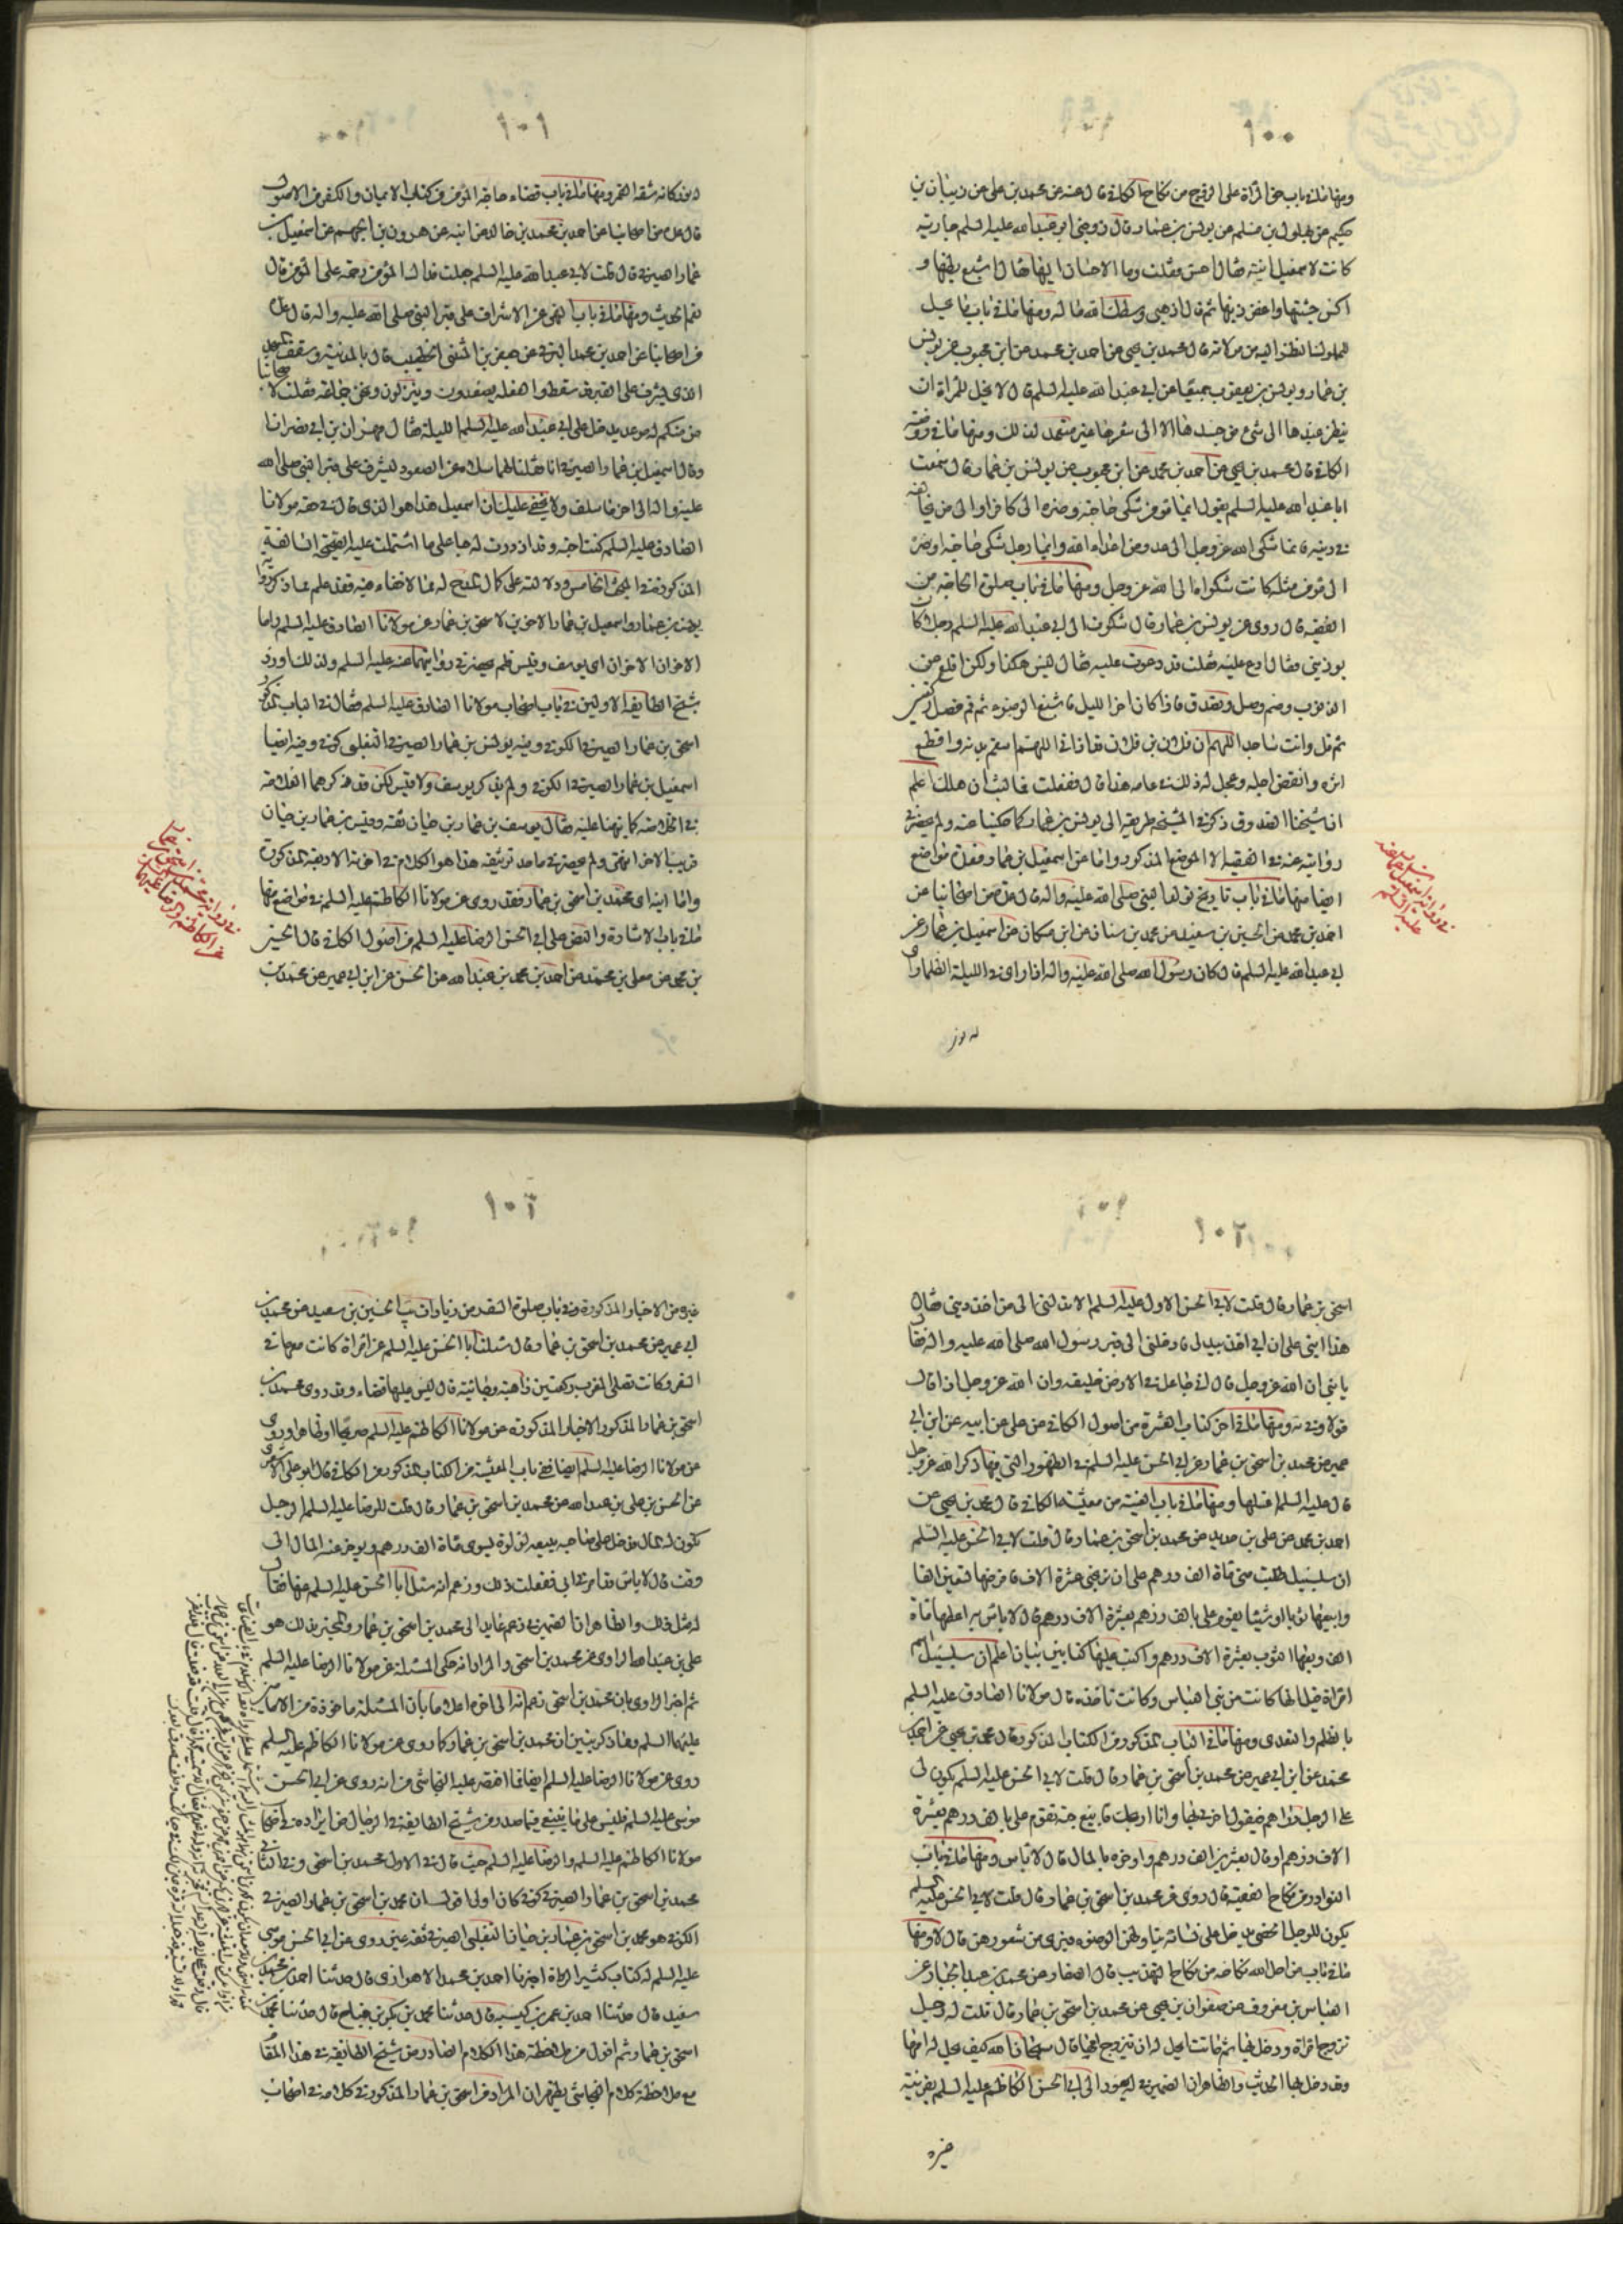 ١٠٠
ومنها ما في باب حق المرأة على الزوج من نكاح الكافي قال عنه عن محمد بن علي عن ذبيان بن
حكيم عن بهلول بن مسلم عن يونس بن عمار قال زوجني ابو عبد الله عليه السلم جارية
كانت لاسمعيل ابنه فقال احسن فقلت وما الاحسان اليها فقال اشبع بطنها و
اكس جثتها واغفر ذنبها ثم قال اذهبي وسطك الله ماله ومنها ما في باب ما يحل
للمملوك النظر اليه من مولاته قال محمد بن يحيى عن احمد بن محمد عن ابن محبوب عن يونس
بن عمار ويونس بن يعقوب جميعا عن ابي عبد الله عليه السلم قال لا يحل للمرأة ان
ينظر عبدها الى شيء من جسدها الا الى شعرها غير متعمد لذلك ومنها ما في روضة
الكافي قال محمد بن يحيى عن احمد بن محمد عن ابن محبوب عن يونس بن عمار قال سمعت
ابا عبد الله عليه السلم يقول ايما مؤمن شكى حاجته وضره الى كافر او الى من يخالفه
في دينه فانما شكى الله عز وجل الى عدو من اعداء الله وايما رجل شكى حاجته وضره
الى مؤمن مثله كانت شكواه الى الله عز وجل ومنها ما في باب صلوة الحاجة من
الفقيه قال روى عن يونس بن عمار قال شكوت الى ابي عبد الله عليه السلم رجلا كان
يوذيني فقال ادع عليه فقلت قد دعوت عليه فقال ليس هكذا ولكن اقلع عن
الذنوب وصم وصل وتصدق فاذا كان اخر الليل فاسبغ الوضوء ثم قم فصل ركعتين
ثم قل وانت ساجد اللهم ان فلان بن فلان قد اذاني اللهم اسقم بدنه واقطع
اثره وانقص اجله وعجل له ذلك في عامه هذا قال ففعلت فما لبث ان هلك اعلم
ان شيخنا الصدوق ذكر في المشيخة طريقه الى يونس بن عمار كما حكينا عنه ولم يحضرني
روايته عنه في الفقيه الا الموضع المذكور واما عن اسمعيل بن عمار ففي مواضع
ايضا منها ما في باب تاريخ مولد النبي صلى الله عليه واله قال عدة من اصحابنا عن
احمد بن محمد عن الحسين بن سعيد عن محمد بن سنان عن ابن مسكان عن اسمعيل بن عمار عن
ابي عبد الله عليه السلم قال كان رسول الله صلى الله عليه واله اذا راى في الليلة الظلماء راى
له نور
في رواية اسمعيل بن عمار عنه عليه السلم
١٠١
له نور كانه شقة القمر ومنها ما في باب قضاء حاجة المؤمن في كتاب الايمان والكفر من الاصول
قال عدة من اصحابنا عن احمد بن محمد بن خالد عن ابيه عن هرون بن الجهم عن اسمعيل بن
عمار الصيرفي قال قلت لابي عبد الله عليه السلم جعلت فداك المؤمن رحمة على المؤمن قال
نعم الحديث ومنها ما في باب النهي عن الاشراف على قبر النبي صلى الله عليه واله قال عدة
من اصحابنا عن احمد بن محمد البرقي عن جعفر بن المثنى الخطيب قال كنت بالمدينة وسقف المسجد
الذي يشرف على القبر قد سقط والفعلة يصعدون وينزلون ونحن جماعة فقلت لاصحابنا
من منكم له موعد يدخل على ابي عبد الله عليه السلم الليلة فقال مهران بن ابي نصر انا
وقال اسمعيل بن عمار الصيرفي انا فقلنا لهما سلاه عن الصعود لنشرف على قبر النبي صلى الله
عليه واله الى اخر ما سلف ولا يخفى عليك ان اسمعيل هذا هو الذي قال في حقه مولانا
الصادق عليه السلم كنت احبه وقد ازددت له حبا على ما اشتملت عليه الصحيحة السالفة
المذكورة في المبحث الخامس ودلالته على كمال المدح له مما لا خفاء فيه فقد علم مما ذكر رواية
يونس بن عمار واسمعيل بن عمار الاخوين لاسحق بن عمار عن مولانا الصادق عليه السلم واما
الاخوان الاخران اي يوسف وقيس فلم يحضرني روايتهما عنه عليه السلم ولذلك اورد
شيخ الطايفة الاولين في باب اصحاب مولانا الصادق عليه السلم فقال في الباب المذكور
اسحق بن عمار الصيرفي الكوفي وفيه يونس بن عمار الصيرفي التغلبي كوفي وفيه ايضا
اسمعيل بن عمار الصيرفي الكوفي ولم يذكر يوسف ولا قيس لكن قد ذكرهما العلامة
في الخلاصة كما نبهنا عليه فقال يوسف بن عمار بن حيان ثقة وقيس بن عمار بن حيان
قريب الامر انتهى ولم يحضرني ماخذ توثيقه هذا هو الكلام في اخوته الاربعة المذكورة
واما ابنه اي محمد بن اسحق بن عمار فقد روى عن مولانا الكاظم عليه السلم في مواضع منها
ما في باب الاشارة والنص على ابي الحسن الرضا عليه السلم من اصول الكافي قال الحسين
بن محمد عن معلى بن محمد عن احمد بن محمد بن عبد الله عن الحسن عن ابن ابي عمير عن محمد بن
في رواية محمد بن اسحق بن عمار عن الكاظم والرضا عليهما السلم
١٠٢
اسحق بن عمار قال قلت لابي الحسن الاول عليه السلم الا تدلني الى من اخذ ديني فقال
هذا ابني علي ان ابي اخذ بيدي فادخلني الى قبر رسول الله صلى الله عليه واله فقال
يا بني ان الله عز وجل قال اني جاعل في الارض خليفة وان الله عز وجل اذا قال
قولا وفى به ومنها ما في اخر كتاب العشرة من اصول الكافي عن علي عن ابيه عن ابن ابي
عمير عن محمد بن اسحق بن عمار عن ابي الحسن عليه السلم في الظهور التي فيها ذكر الله عز وجل
قال عليه السلم اغسلها ومنها ما في باب العينة من معيشة الكافي قال محمد بن يحيى عن
احمد بن محمد عن علي بن حديد عن محمد بن اسحق بن عمار قال قلت لابي الحسن عليه السلم
ان سلسبيل طلبت مني مائة الف درهم على ان تربحني عشرة الاف فاقرضها تسعين الفا
وابيعها ثوبا او شيئا يقوم علي بالف درهم بعشرة الاف درهم قال لا باس به اعطها مائة
الف وبعها الثوب بعشرة الاف درهم واكتب عليها كتابين بيان اعلم ان سلسبيل اسم
امراة فيل انها كانت من بني العباس وكانت تاخذ مال مولانا الصادق عليه السلم
بالظلم والتعدي ومنها ما في الباب المذكور من الكتاب المذكور قال محمد بن يحيى عن احمد بن
محمد عن ابن ابي عمير عن محمد بن اسحق بن عمار قال قلت لابي الحسن عليه السلم يكون لي
على الرجل دراهم فيقول اخرني بها وانا اربحك فابيعه جبة تقوم علي بالف درهم بعشرة
الاف درهم او قال بعشرين الف درهم واوخره بالمال قال لا باس ومنها ما في باب
النوادر من نكاح الفقيه قال روى عن محمد بن اسحق بن عمار قال قلت لابي الحسن عليه السلم
يكون للرجل الخصي يدخل على نسائه يناولهن الوضوء فيرى من شعورهن قال لا ومنها
ما في باب من احل الله نكاحه من نكاح التهذيب قال الصفار عن محمد بن عبد الجبار عن
العباس بن معروف عن صفوان بن يحيى عن محمد بن اسحق بن عمار قال قلت له رجل
تزوج امراة ودخل بها ثم ماتت ايحل له ان يتزوج امها قال سبحان الله كيف يحل له امها
وقد دخل بها الحديث والظاهر ان الضمير في له يعود الى ابي الحسن الكاظم عليه السلم بقرينة
غيره
١٠٣
غيره من الاخبار المذكورة وفي باب صلوة السفر من زيادات يب الحسين بن سعيد عن محمد بن
ابي عمير عن محمد بن اسحق بن عمار قال سئلت ابا الحسن عليه السلم عن امراة كانت معنا في
السفر وكانت تصلي المغرب ركعتين ذاهبة وجائية قال ليس عليها قضاء وقد روى محمد بن
اسحق بن عمار المذكور الاخبار المذكورة عن مولانا الكاظم عليه السلم صريحا او ظاهرا وروى
عن مولانا الرضا عليه السلم ايضا ففي باب العينة من الكتاب المذكور من الكافي قال ابو علي الاشعري
عن الحسن بن علي بن عبد الله عن محمد بن اسحق بن عمار قال قلت للرضا عليه السلم الرجل
يكون له المال فدخل على صاحبه يبيعه لؤلؤة تسوى مائة الف درهم ويوخر عنه المال الى
وقت قال لا باس قد امرني ابي ففعلت ذلك وزعم انه سئل ابا الحسن عليه السلم عنها فقال
له مثل ذلك والظاهر ان الضمير في زعم عايد الى محمد بن اسحق بن عمار والمخبر بذلك هو
علي بن عبد الله الراوي عن محمد بن اسحق والمراد انه حكى المسئلة عن مولانا الرضا عليه السلم
ثم اخبر الراوي بان محمد بن اسحق زعم انه الى اخره اعلاما بان المسئلة ماخوذة من الامامين
عليهما السلم ومما ذكر يتبين ان محمد بن اسحق بن عمار كما روى عن مولانا الكاظم عليه السلم
روى عن مولانا الرضا عليه السلم ايضا فما اقتصر عليه النجاشي من انه روى عن ابي الحسن
موسى عليه السلم فليس على ما ينبغي فما صدر من شيخ الطايفة في الرجال من ايراده في اصحاب
مولانا الكاظم عليه السلم والرضا عليه السلم حيث قال في الاول محمد بن اسحق وفي الثاني
محمد بن اسحق بن عمار الصيرفي كوفي كان اولى اذ محمد بن اسحق بن عمار الصيرفي
الكوفي هو محمد بن اسحق بن عمار بن حيان التغلبي الصيرفي ثقة عين روى عن ابي الحسن موسى
عليه السلم له كتاب كثير الرواة اخبرنا احمد بن محمد الاهوازي قال حدثنا احمد بن محمد بن
سعيد قال حدثنا احمد بن عمر بن كيسبه قال حدثنا محمد بن بكر بن جناح قال حدثنا محمد بن
اسحق بن عمار ثم اقول من ملاحظة هذا الكلام الصادر من شيخ الطايفة في هذا المقام
مع ملاحظة كلام النجاشي يظهر ان المراد من اسحق بن عمار المذكور في كلامه في اصحاب